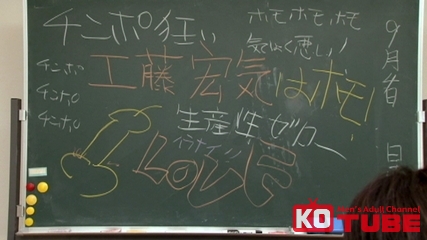 チンポ狂い
ホモホモホモ
気しょく悪い!
9月 日
工藤宏気はホモ!
チンポ
チンポ
チンポ
生産性ゼロー
イラナイ!!
LOVE
KO TUBE
Men's Adult Channel